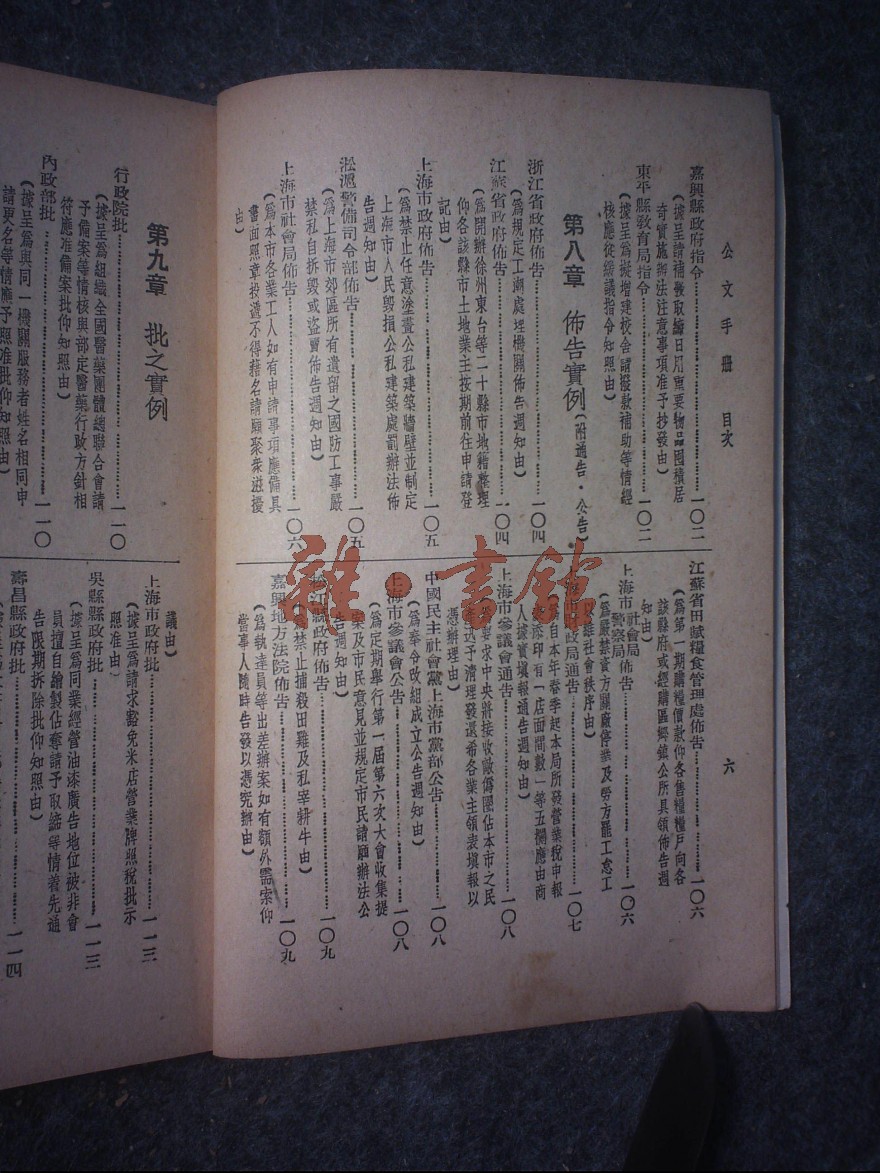 公文手冊 目次
六
嘉興縣政府指令……一〇二
(據呈請補發取締日用重要物品囤積居
奇實施辦法注意事項准予抄發由)
東平縣教育局指令……一〇二
(據呈為擬增建校舍請撥款補助等情經
核應從緩議指令知照由)
第八章 佈告實例(附通告・公告)
浙江省政府佈告……一〇四
(為規定工潮處理機關佈告週知由)
江蘇省政府佈告……一〇四
(為開辦徐州東台等二十縣市地籍整理
仰各該縣市土地業主按期前往申請登
記由)
上海市政府佈告……一〇五
(為禁止任意塗畫公私建築牆壁並制定
上海市人民毀損公私建築處罰辦法佈
告週知由)
淞滬警備司令部佈告……一〇五
(為上海市郊區所有遺留之國防工事嚴
禁私自拆毀或盜賣佈告週知由)
上海市社會局佈告……一〇六
(為本市各業工人如有申請事項應備具
書面照章投遞不得藉名請願聚衆滋擾
由)
江蘇省田賦糧食管理處佈告……一〇六
(為第一期購糧價款仰各售糧糧戶向各
該縣府或經購區鄉鎮公所具領佈告週
知由)
上海市社會局警察局佈告……一〇六
(為嚴禁資方關廠停業及勞方罷工怠工
維社會秩序由)
海市財政局通告……一〇七
為自本年春季起本局所發營業稅申報
添印有「店面間數」等五欄應由商
人據實填報通告週知由)
上海市參議會通告……一〇八
要求中央將接收敵偽圈佔本市之民
迅予清理發還希各業主領表填報以
憑辦理由)
中國民主社會黨上海市黨部公告……一〇八
(為奉令改組成立公告週知由)
上海市參議會公告……一〇八
(為定期舉行第一屆第六次大會收集提
案及市民意見並規定市民請願辦法公
告週知由)
松江縣政府佈告……一〇九
(禁止捕殺田雞及私宰耕牛由)
嘉興地方法院佈告……一〇九
(為執達員等出差辦案如有額外需索仰
當事人隨時告發以憑究辦由)
第九章 批之實例
行政院批……一一〇
(據呈為組織全國醫藥團體總聯合會請
予備案等情核與部定醫藥行政方針相
符應准備案批仰知照由)
內政部批……一一〇
(據呈為與同一機關服務者姓名相同申
請更名等情應予照准批仰知照由)
議由)
上海市政府批……一一三
(據呈為請求豁免米店營業牌照稅批示
應准由)
吳縣縣政府批……一一三
(據呈為同業經營油漆廣告地位被非會
員擅自繪製佔奪請予取締等情着先通
告限期拆除批仰知照由)
壽昌縣政府批……一一四
雜・書館